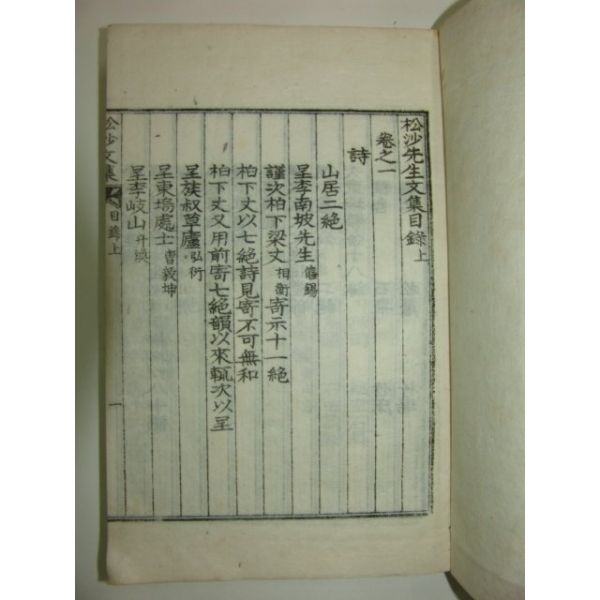 松沙先生文集目錄上
卷之一
詩
山居二絶
呈李南坡先生僖錫
謹次柏下梁丈相衡寄示十一絶
柏下丈以七絶詩見寄不可無和
柏下丈又用前寄七絶韻以來輒次以呈
呈族叔草廬弘衍
呈東塢處士曺毅坤
呈李岐山
松沙文集
目錄上
一